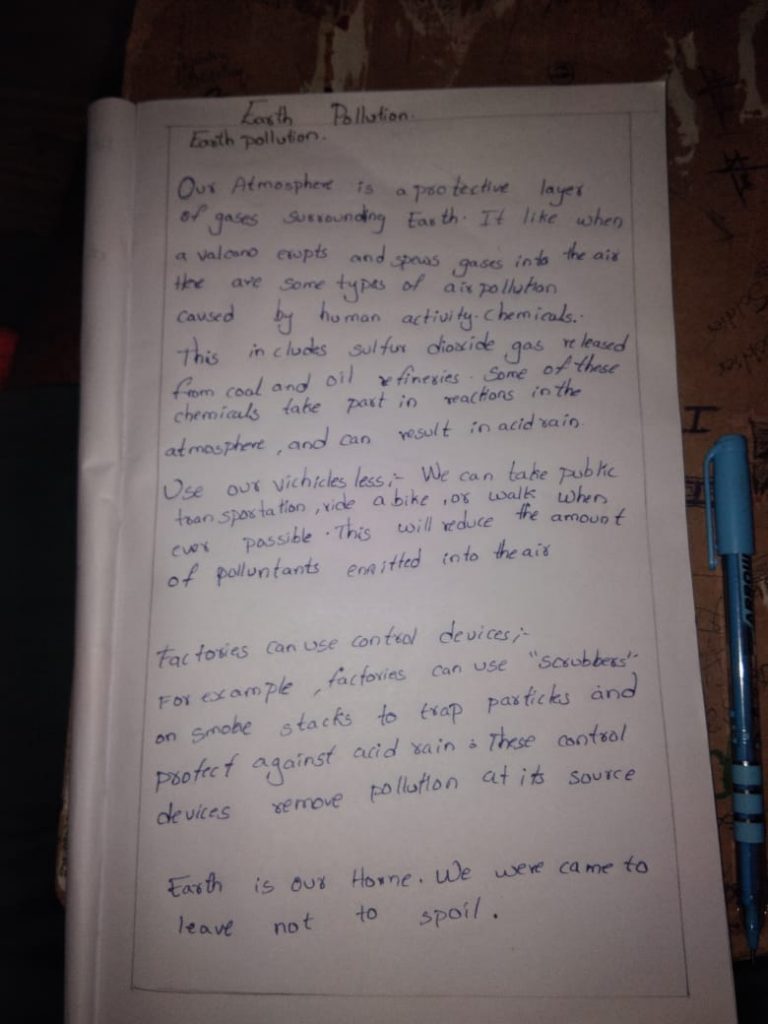 Earth Pollution.
Earth pollution.
Our Atmosphere is a protective layer
of gases surrounding Earth. It like when
a valcano erupts and spews gases into the air
there are some types of air pollution
caused by human activity. chemicals.
This includes sulfur dioxide gas released
from coal and oil refineries. Some of these
chemicals take part in reactions in the
atmosphere, and can result in acid rain.
Use our vichicles less;- We can take public
transportation, ride a bike, or walk when
ever possible. This will reduce the amount
of polluntants emitted into the air
Factories can use control devices;-
For example, factories can use "scrubbers"
on smoke stacks to trap particles and
protect against acid rain: These control
devices remove pollution at its source
Earth is our Home. We were came to
leave not to spoil.